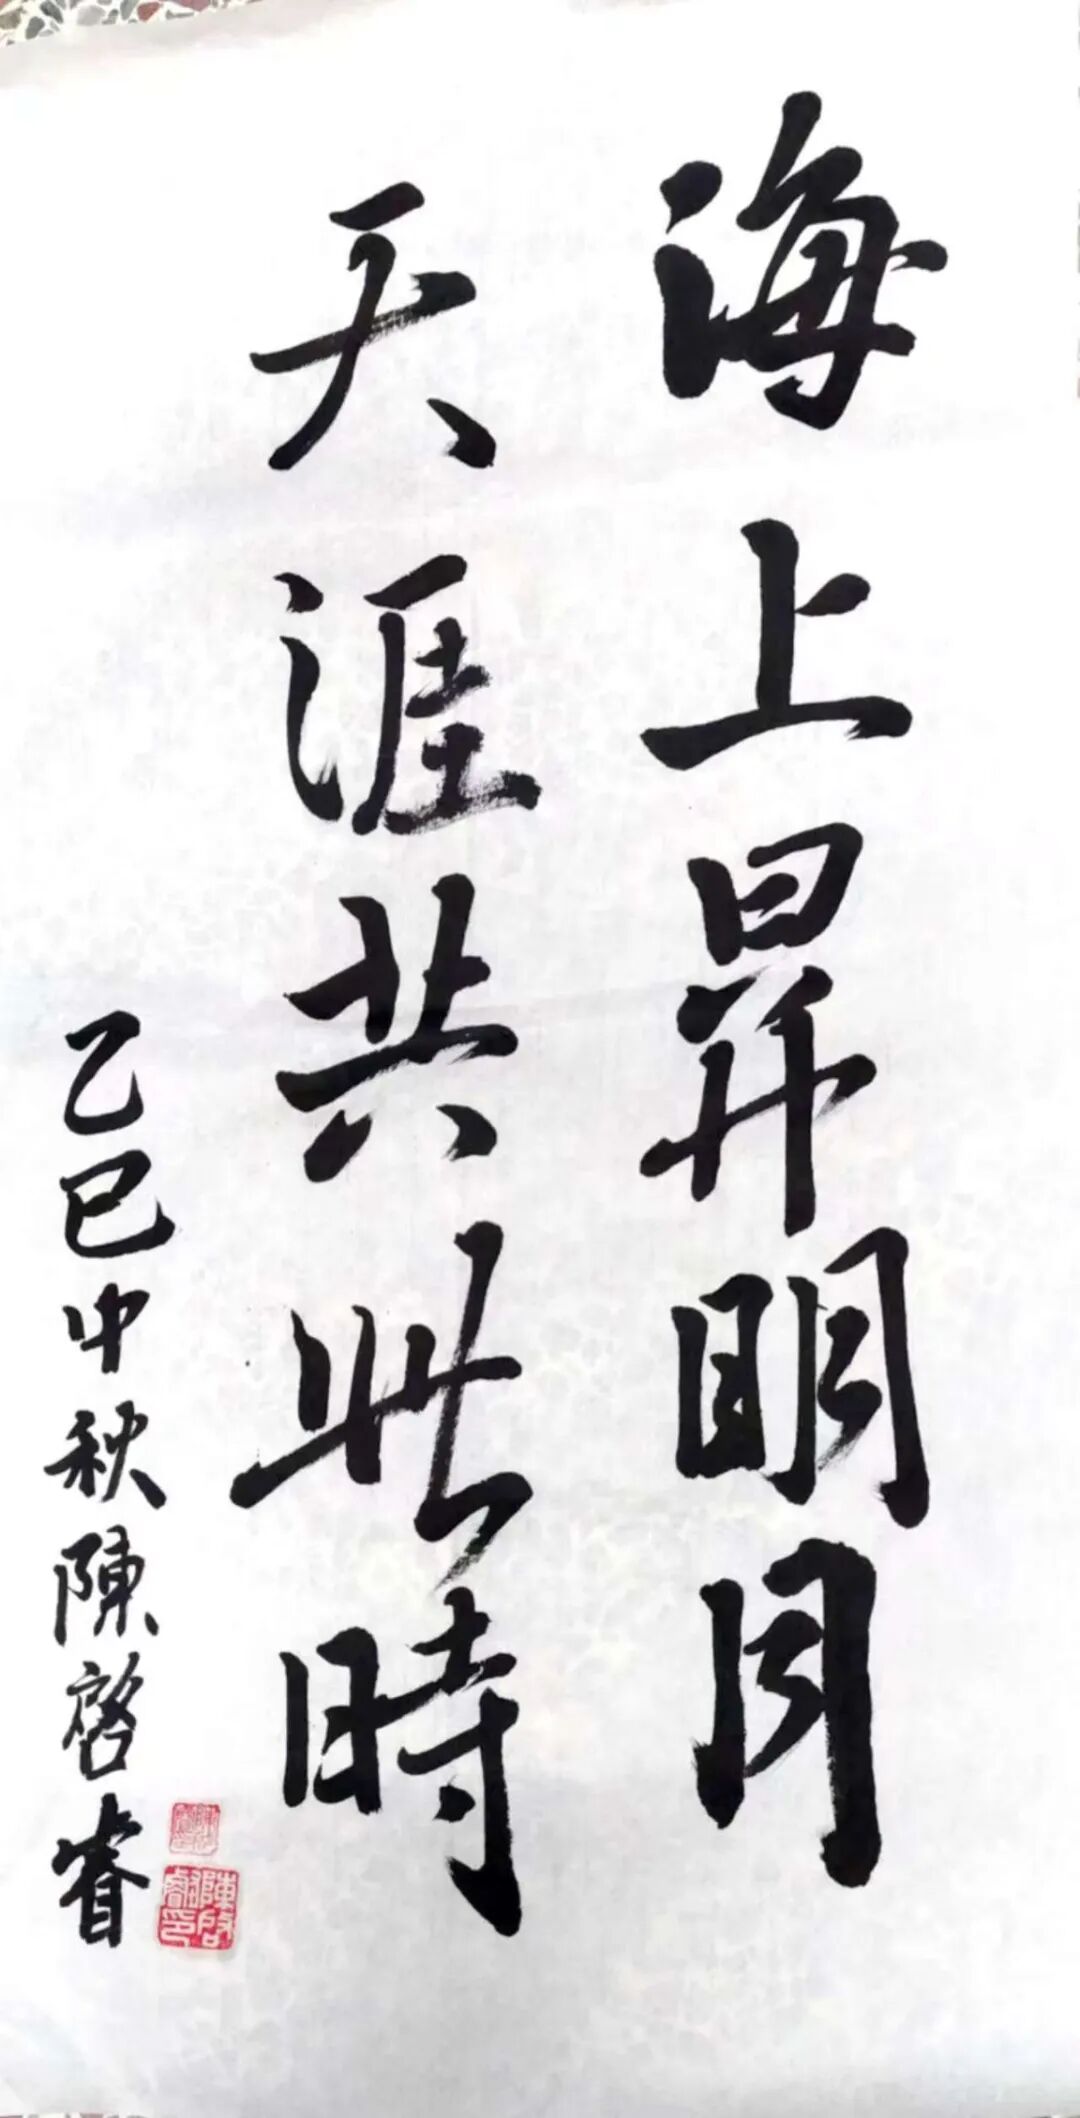 海上昇明月
天涯共此時
乙巳中秋陳啓睿
陳啓睿印